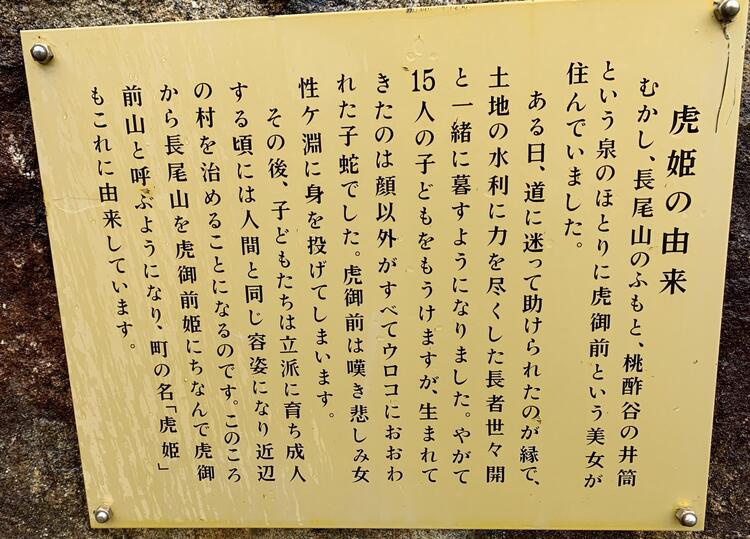 虎姫の由来
むかし、長尾山のふもと、桃酢谷の井筒
という泉のほとりに虎御前という美女が
住んでいました。
ある日、道に迷って助けられたのが縁で、
土地の水利に力を尽くした長者世々開
と一緒に暮すようになりました。やがて
15人の子どもをもうけますが、生まれて
きたのは顔以外がすべてウロコにおおわ
れた子蛇でした。虎御前は嘆き悲しみ女
性ケ淵に身を投げてしまいます。
その後、子どもたちは立派に育ち成人
する頃には人間と同じ容姿になり近辺
の村を治めることになるのです。このころ
から長尾山を虎御前姫にちなんで虎御
前山と呼ぶようになり、町の名「虎姫」
もこれに由来しています。